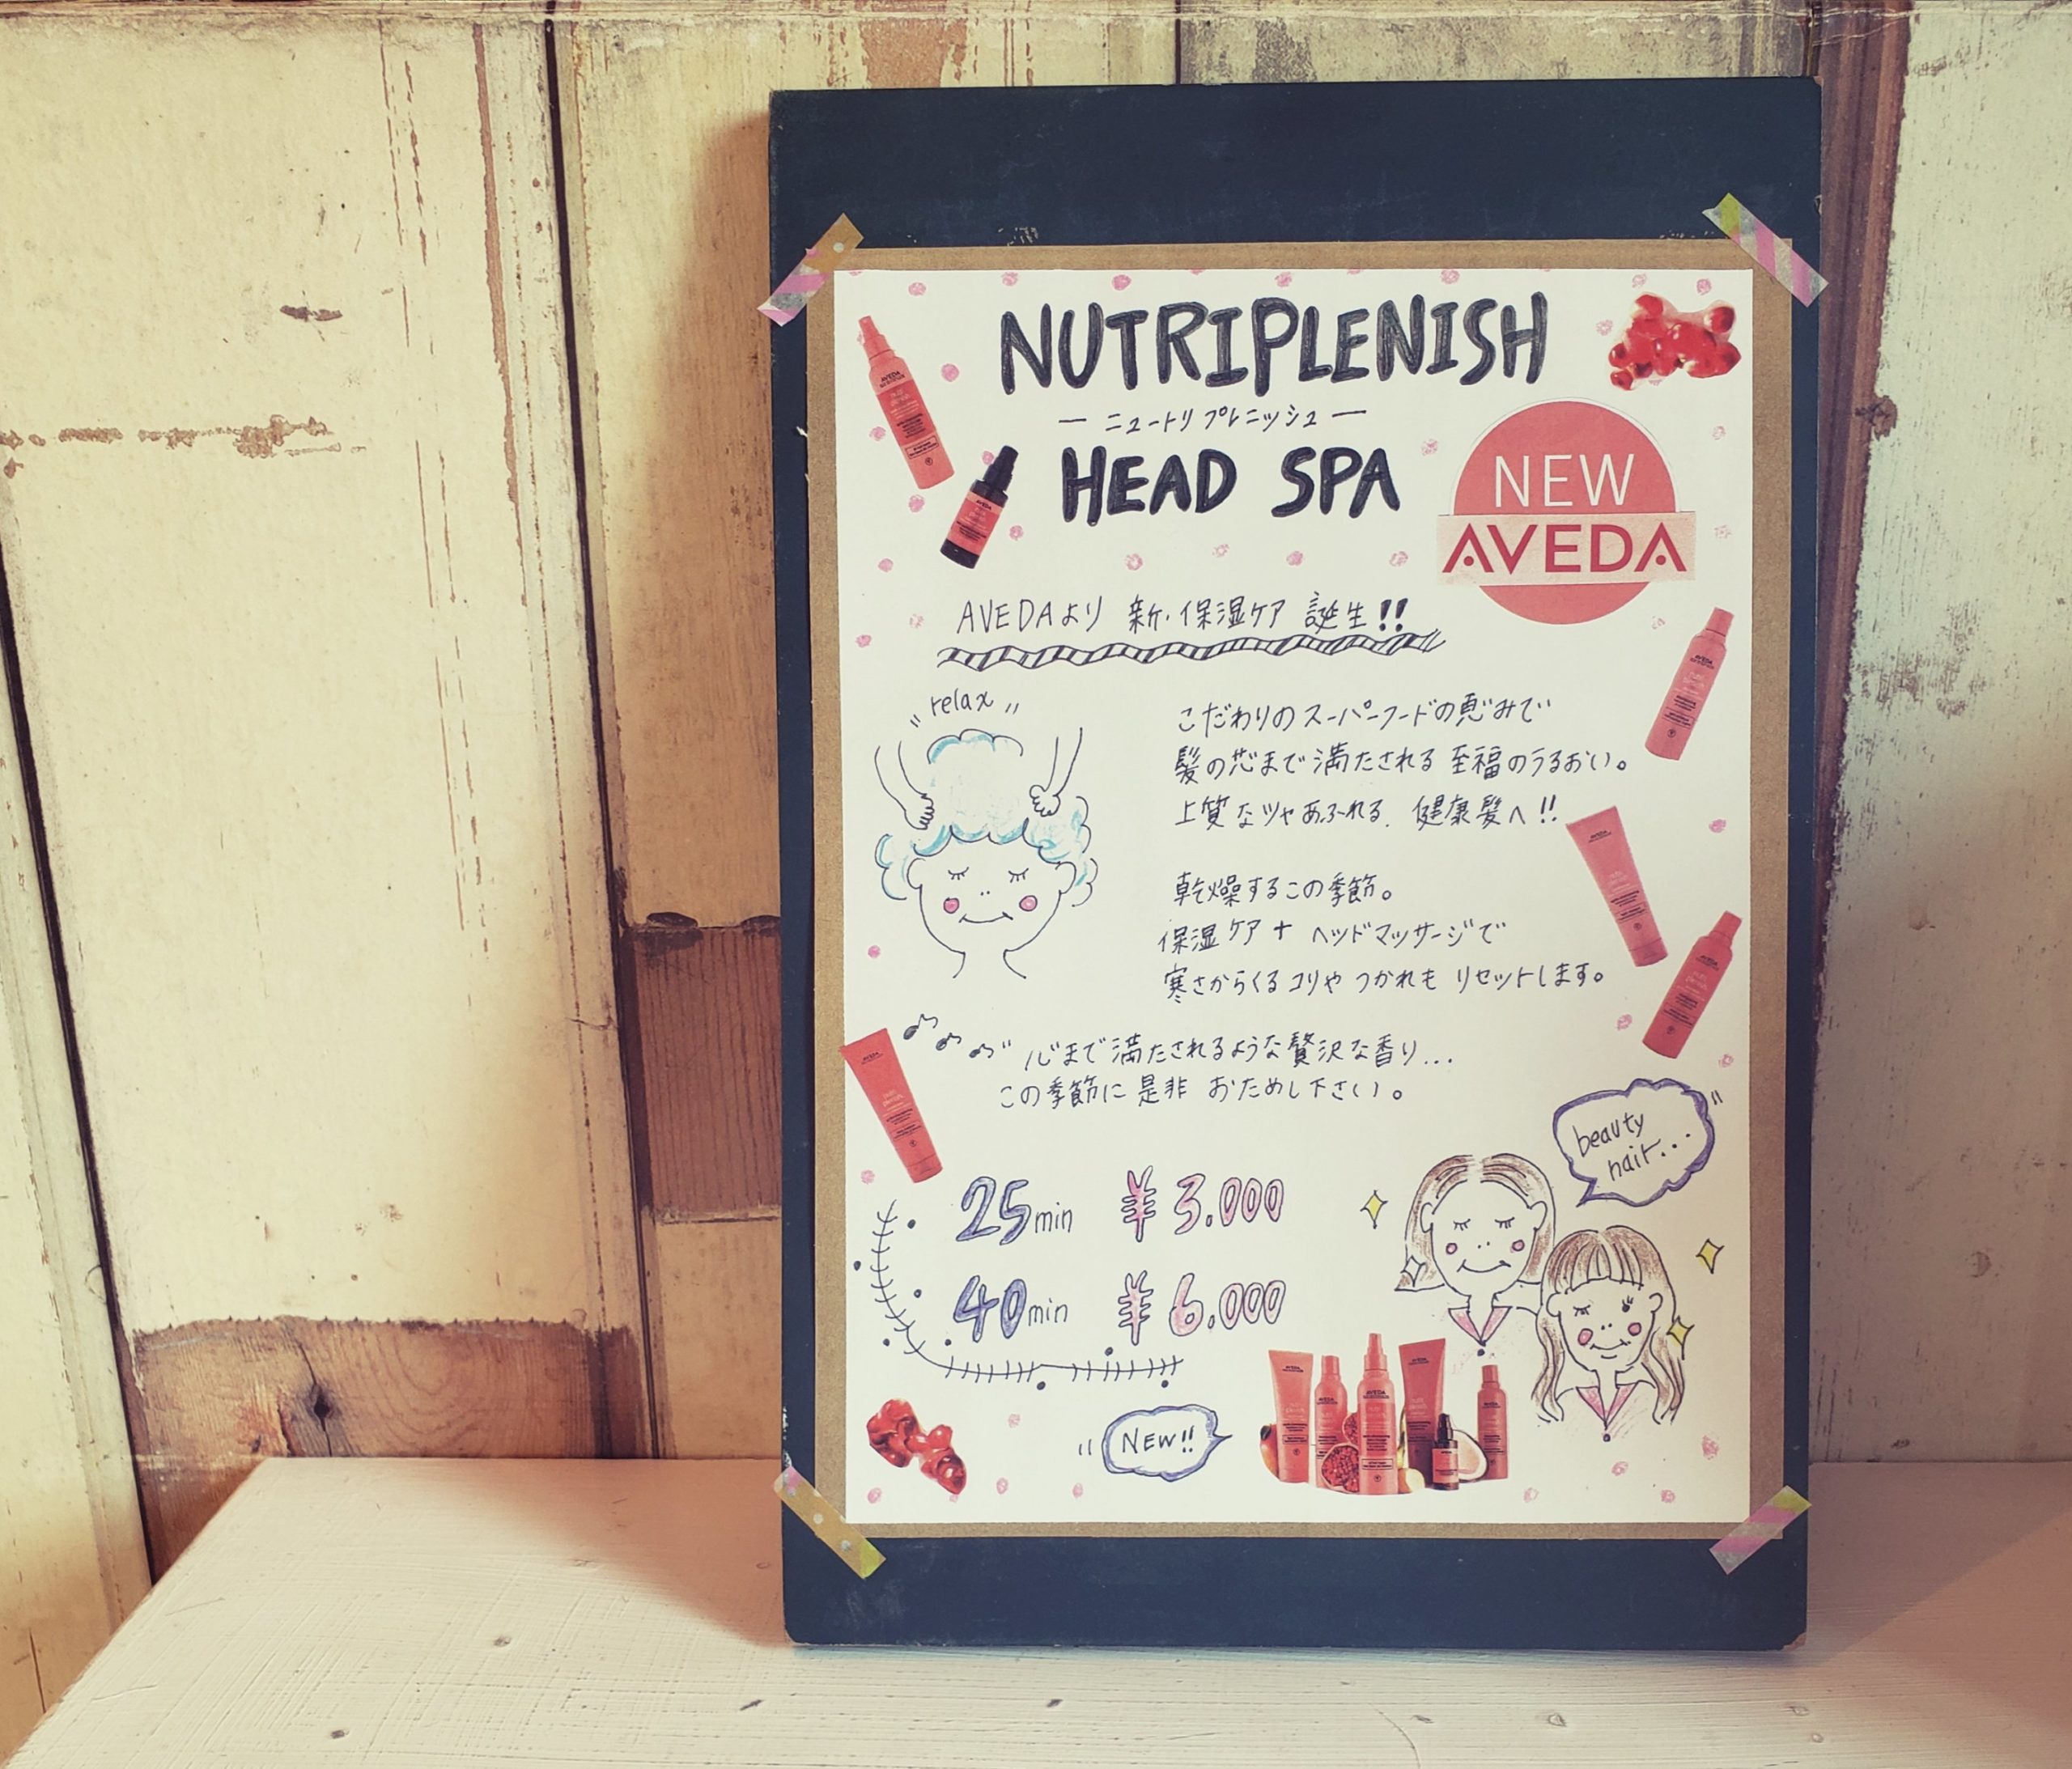 NUTRIPLENISH
ー ニュートリプレニッシュ ー
HEAD SPA
NEW
AVEDA
AVEDAより 新・保湿ケア 誕生!!
relax
こだわりのスーパーフードの恵みで
髪の芯まで満たされる 至福のうるおい。
上質なツヤあふれる、健康髪へ!!
乾燥するこの季節。
保湿ケア + ヘッドマッサージで
寒さからくるコリや つかれも リセットします。
心まで満たされるような贅沢な香り...
この季節に是非 おためし下さい。
beauty
hair...
25min ¥3.000
40min ¥6.000
NEW!!